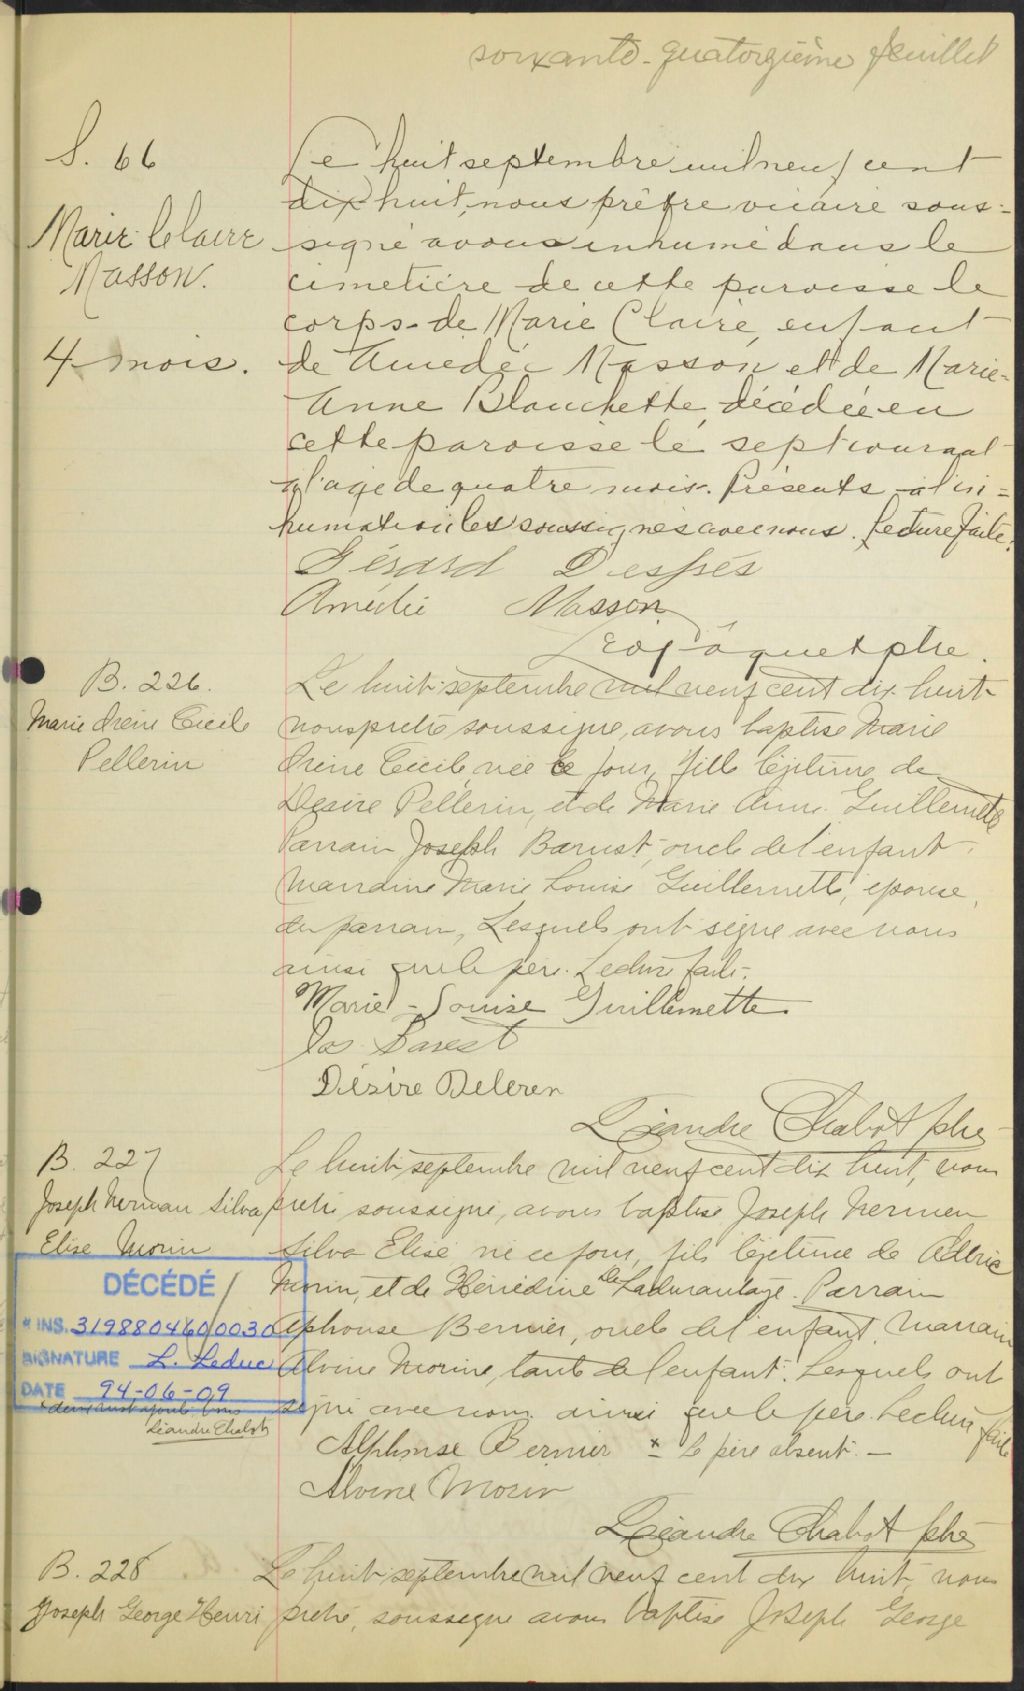 soixante-quatorzième feuillet
S. 66
Marie-Claire
Masson.
4 mois.
Le huit septembre mil neuf cent
dix huit, nous prêtre vicaire sous=
signé avons inhumé dans le
cimetière de cette paroisse le
corps de Marie Claire, enfant
de Amédée Masson et de Marie-
Anne Blanchette, décédée en
cette paroisse le sept courant
à l'age de quatre mois. Présents à l'in=
humation les soussignés avec nous. Lecture faite.
Gérard Després
Amédée Masson
Léo Pâquet ptre.
B. 226.
Marie Irène Cécile
Pellerin
Le huit septembre mil neuf cent dix huit
nous pretre soussigne, avons baptise Marie
Irène Cécile, née ce jour, fille légitime de
Désiré Pellerin, et de Marie Anne Guillemette
Parrain Joseph Barust, oncle de l'enfant,
Marraine Marie Louise Guillemette, epouse,
du parrain, Lesquels ont signe avec nous
ainsi que le père. Lecture faite.
Marie-Louise Guillemette
Jos Barest
Désire Peleren
Léandre Chabot ptre
B. 227
Joseph Nerman Silva
Elise Morin
Le huit septembre mil neuf cent dix huit, nous
pretre soussigne, avons baptise Joseph Nermen
Silva Elise né ce jour, fils légitime de Aldéric
Morin, et de Hénédine de Ladurantaye. Parrain
Alphonse Bernier, oncle de l'enfant, Marraine
Alvine Morine, tante de l'enfant. Lesquels ont
signe avec nous ainsi que le père. Lecture faite
DÉCÉDÉ
* INS. 3198804600030
SIGNATURE L. Leduc
DATE 94-06-09
Léandre Chabot
Alphonse Bernier × = le père absent. –
Alvine Morin
Léandre Chabot ptre
B. 228
Joseph George Henri
Le huit septembre mil neuf cent dix huit, nous
pretre, soussigne avons baptise Joseph George